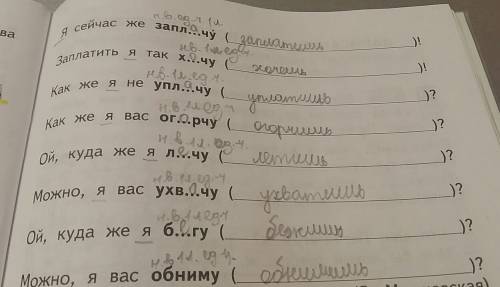 ва
н.в. ед.ч. 1л.
Я сейчас же запл...чу́ (заплатишь)!
н.в. 1л. ед.ч.
Заплатить я так х...чу (хочешь)!
н.в. 1л. ед.ч.
Как же я не упл...чу (уплатишь)?
н.в. 1л. ед.ч.
Как же я вас ог...рчу (огорчишь)?
н.в. 1л. ед.ч.
Ой, куда же я л...чу (летишь)?
н.в. 1л. ед.ч.
Можно, я вас ухв...чу (ухватишь)?
н.в. 1л. ед.ч.
Ой, куда же я б...гу (бежишь)?
н.в. 1л. ед.ч.
Можно, я вас обниму (обнимишь)?